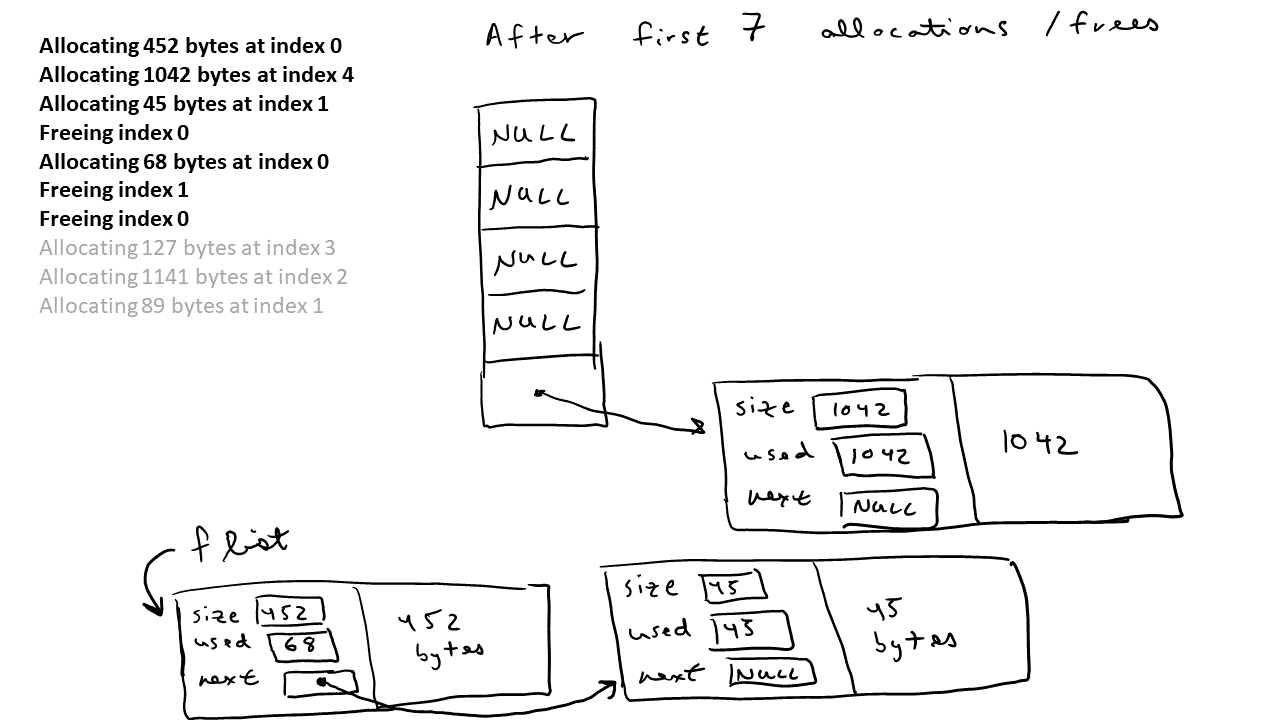 After first 7 allocations / frees
Allocating 452 bytes at index 0
Allocating 1042 bytes at index 4
Allocating 45 bytes at index 1
Freeing index 0
Allocating 68 bytes at index 0
Freeing index 1
Freeing index 0
Allocating 127 bytes at index 3
Allocating 1141 bytes at index 2
Allocating 89 bytes at index 1
NULL
NULL
NULL
NULL
size 1042
used 1042
next NULL
1042
flist
size 452
used 68
next
452
bytes
size 45
used 45
next NULL
45
bytes